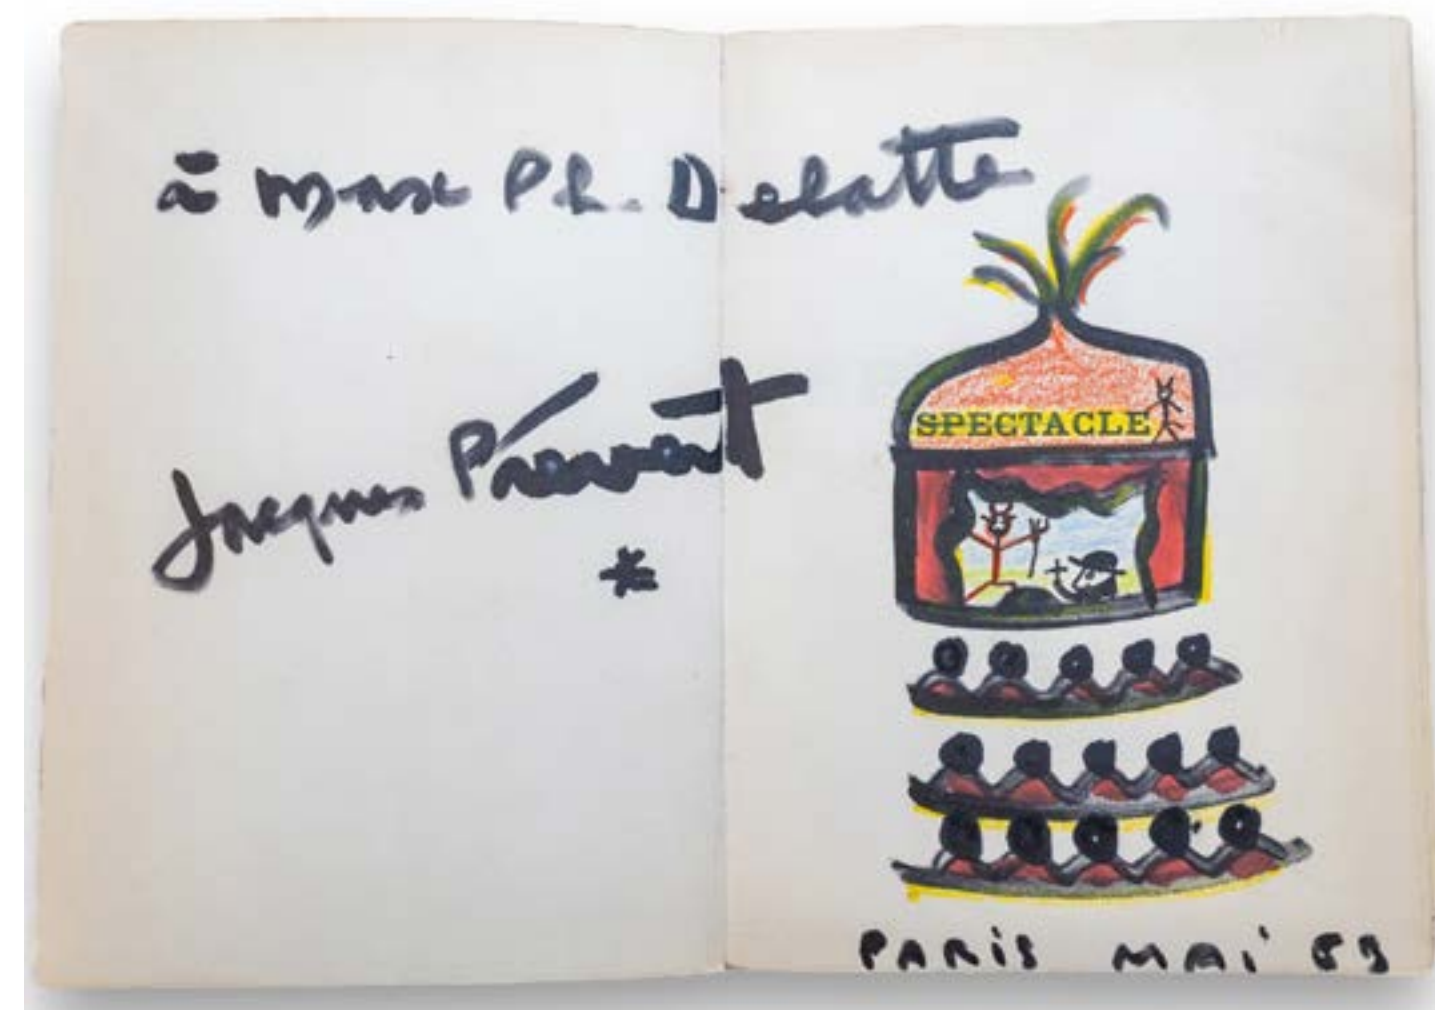 à Max Ph. Delatte
Jacques Prévert
*
SPECTACLE
PARIS MAI 63